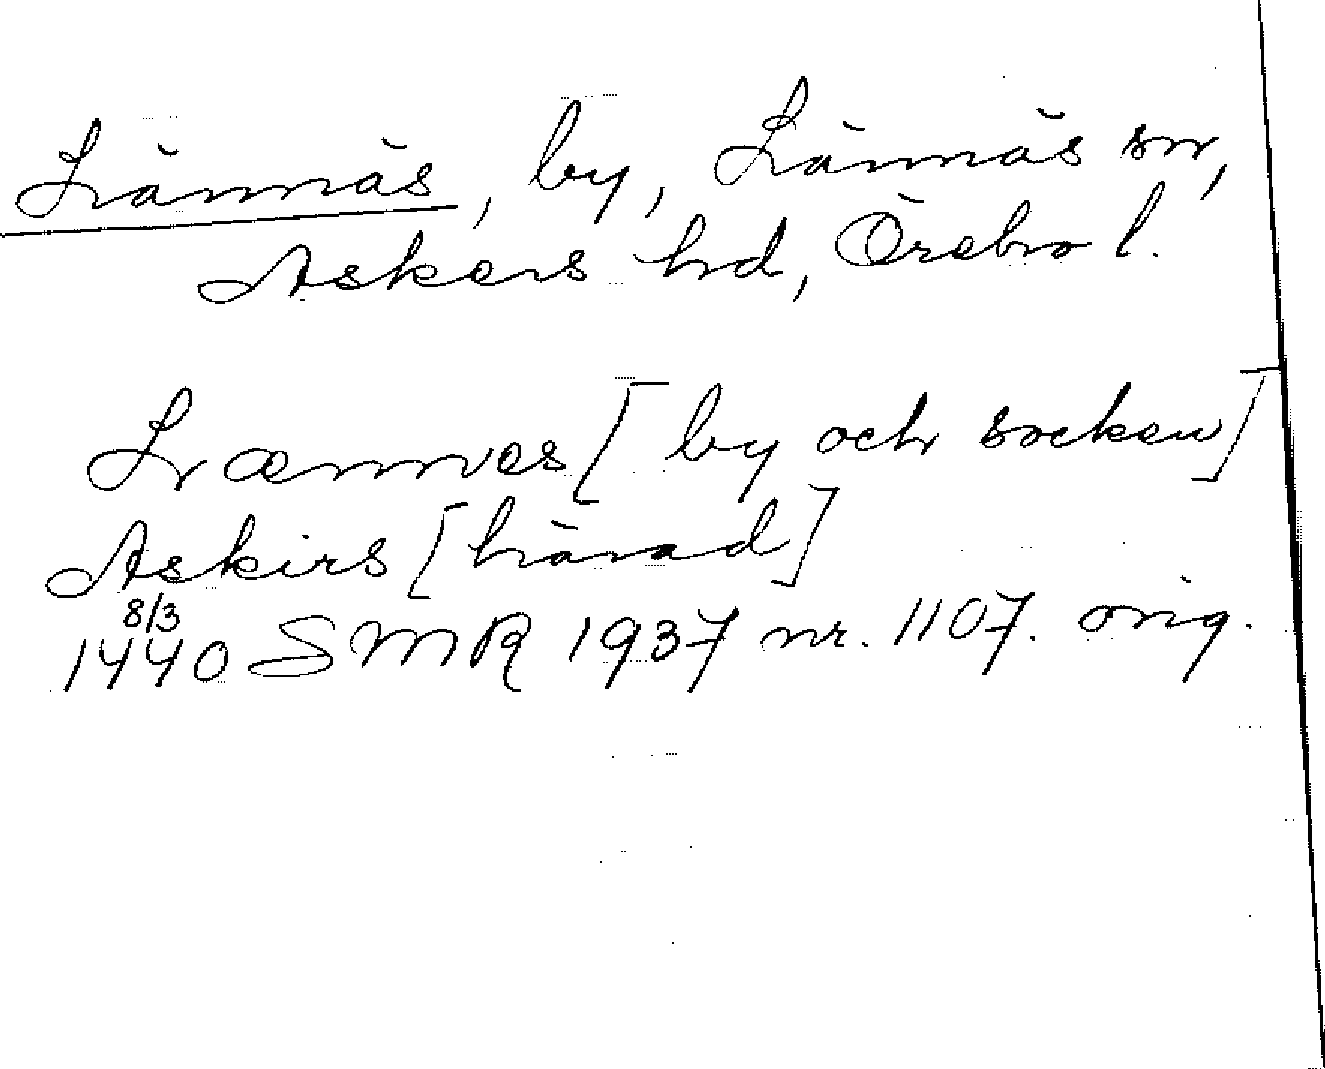 Lännäs, by, Lännäs sn,
Askers hd, Örebro l.
Lænnæs [by och socken]
Askirs [härad]
8/3
1440 SMR 1937 nr. 1107. orig.